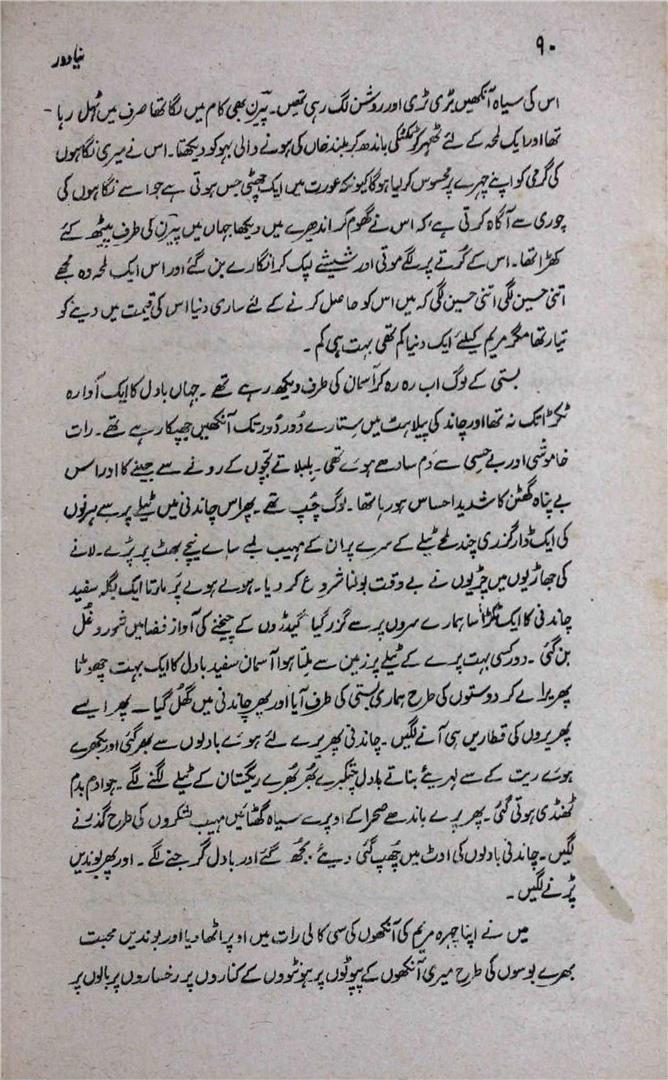 ۹۰
نیا دور
اس کی سیاہ آنکھیں بڑی بڑی اور روشن لگ رہی تھیں۔ پیرن بھی کام میں لگا تھا صرف میں ٹہل رہا
تھا اور ایک لمحہ کے لئے ٹھہر کر ٹکٹکی باندھ کر بلند خاں کی ہونے والی بہو کو دیکھتا۔ اس نے میری نگاہوں
کی گرمی کو اپنے چہرے پر محسوس کر لیا ہوگا کیونکہ عورت میں ایک چھٹی حس ہوتی ہے جو اسے نگاہوں کی
چوری سے آگاہ کرتی ہے، کہ اس نے گھوم کر اندھیرے میں دیکھا جہاں میں پیرن کی طرف پیٹھ کئے
کھڑا تھا۔ اس کے کُرتے پر لگے موتی اور شیشے لپک کر انگارے بن گئے اور اس ایک لمحہ وہ مجھے
اتنی حسین لگی اتنی حسین لگی کہ میں اس کو حاصل کرنے کے لئے ساری دنیا اس کی قیمت میں دینے کو
تیار تھا مگر مریم کیلئے ایک دنیا کم تھی بہت ہی کم۔
بستی کے لوگ اب رہ رہ کر آسمان کی طرف دیکھ رہے تھے۔ جہاں بادل کا ایک آوارہ
ٹکڑا تک نہ تھا اور چاند کی پیلاہٹ میں ستارے دُور دُور تک آنکھیں جھپکا رہے تھے۔ رات
خاموشی اور بے حسی سے دَم سادھے ہوئے تھی۔ بلبلاتے بچوں کے رونے سے جینے کا اور اس
بے پناہ گھٹن کا شدید احساس ہو رہا تھا۔ لوگ چُپ تھے۔ پھر اس چاندنی میں ٹیلے پر سے ہرنوں
کی ایک ڈار گزری چند لمحے ٹیلے کے سرے پر ان کے مہیب لمبے سائے نیچے بھٹ پر پڑے۔ لانے
کی جھاڑیوں میں چڑیوں نے بے وقت بولنا شروع کر دیا۔ ہولے ہولے پَر مارتا ایک بگلہ سفید
چاندنی کا ایک ٹکڑا سا ہمارے سروں پر سے گزر گیا گیدڑوں کے چیخنے کی آواز فضا میں شور و غُل
بن گئی۔ دور کسی بہت پرے کے ٹیلے پر زمین سے ملتا ہوا آسمان سفید بادل کا ایک بہت چھوٹا
پھریرا لے کر دوستوں کی طرح ہماری بستی کی طرف آیا اور پھر چاندنی میں گھُل گیا۔ پھر ایسے
پھریروں کی قطاریں سی آنے لگیں۔ چاندنی پھریرے لئے ہوئے بادلوں سے بھر گئی اور بکھرے
ہوئے ریت کے سے لہریئے بناتے بادل چتکبرے بھُر بھُرے ریگستان کے ٹیلے لگنے لگے۔ ہوا دم بدم
ٹھنڈی ہوتی گئی۔ پھر پرے باندھے صحرا کے اوپر سے سیاہ گھٹائیں مہیب لشکروں کی طرح گذرنے
لگیں۔ چاندنی بادلوں کی اوٹ میں چھُپ گئی دیئے بُجھ گئے اور بادل گرجنے لگے۔ اور پھر بوندیں
پڑنے لگیں۔
میں نے اپنا چہرہ مریم کی آنکھوں کی سی کالی رات میں اوپر اٹھا دیا اور بوندیں محبت
بھرے بوسوں کی طرح میری آنکھوں کے پپوٹوں پر ہونٹووں کے کناروں پر رخساروں پر بالوں پر